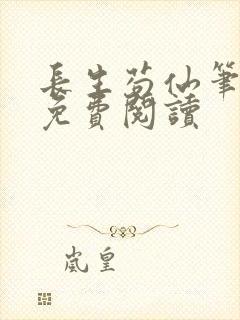 長生苟仙筆
免費閱讀
嵐皇